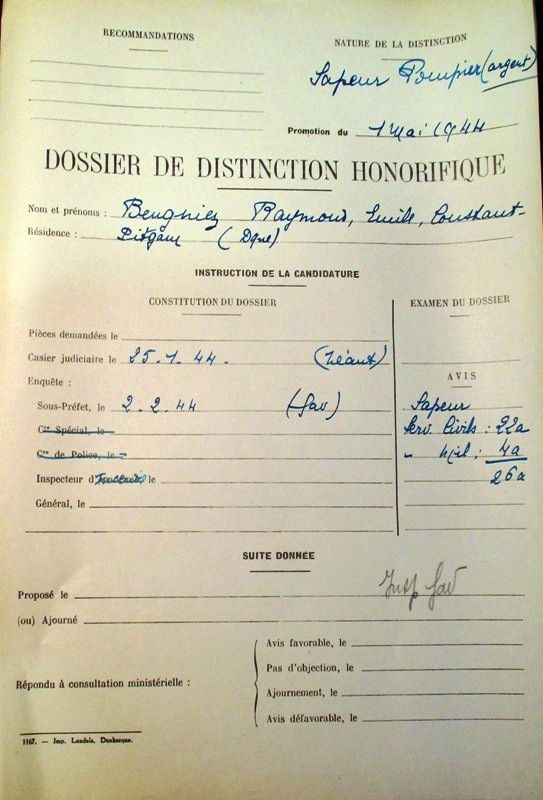 RECOMMANDATIONS
NATURE DE LA DISTINCTION
Sapeur Pompier (argent)
Promotion du 1 Mai 1944
DOSSIER DE DISTINCTION HONORIFIQUE
Nom et prénoms : Beugniez Raymond, Emile, Constant-
Résidence : Pitgam (Dque)
INSTRUCTION DE LA CANDIDATURE
CONSTITUTION DU DOSSIER
Pièces demandées le
Casier judiciaire le 25.1.44. (Néant)
Enquête :
Sous-Préfet, le 2.2.44 (fav)
Cre Spécial, le -
Cre de Police, le -
Inspecteur d' le
Général, le
EXAMEN DU DOSSIER
AVIS
Sapeur
Serv. Civils : 22a
" Mil : 4a
26a
SUITE DONNÉE
Insp fav
Proposé le
(ou) Ajourné
Répondu à consultation ministérielle :
Avis favorable, le
Pas d'objection, le
Ajournement, le
Avis défavorable, le
1167. — Imp. Landais, Dunkerque.